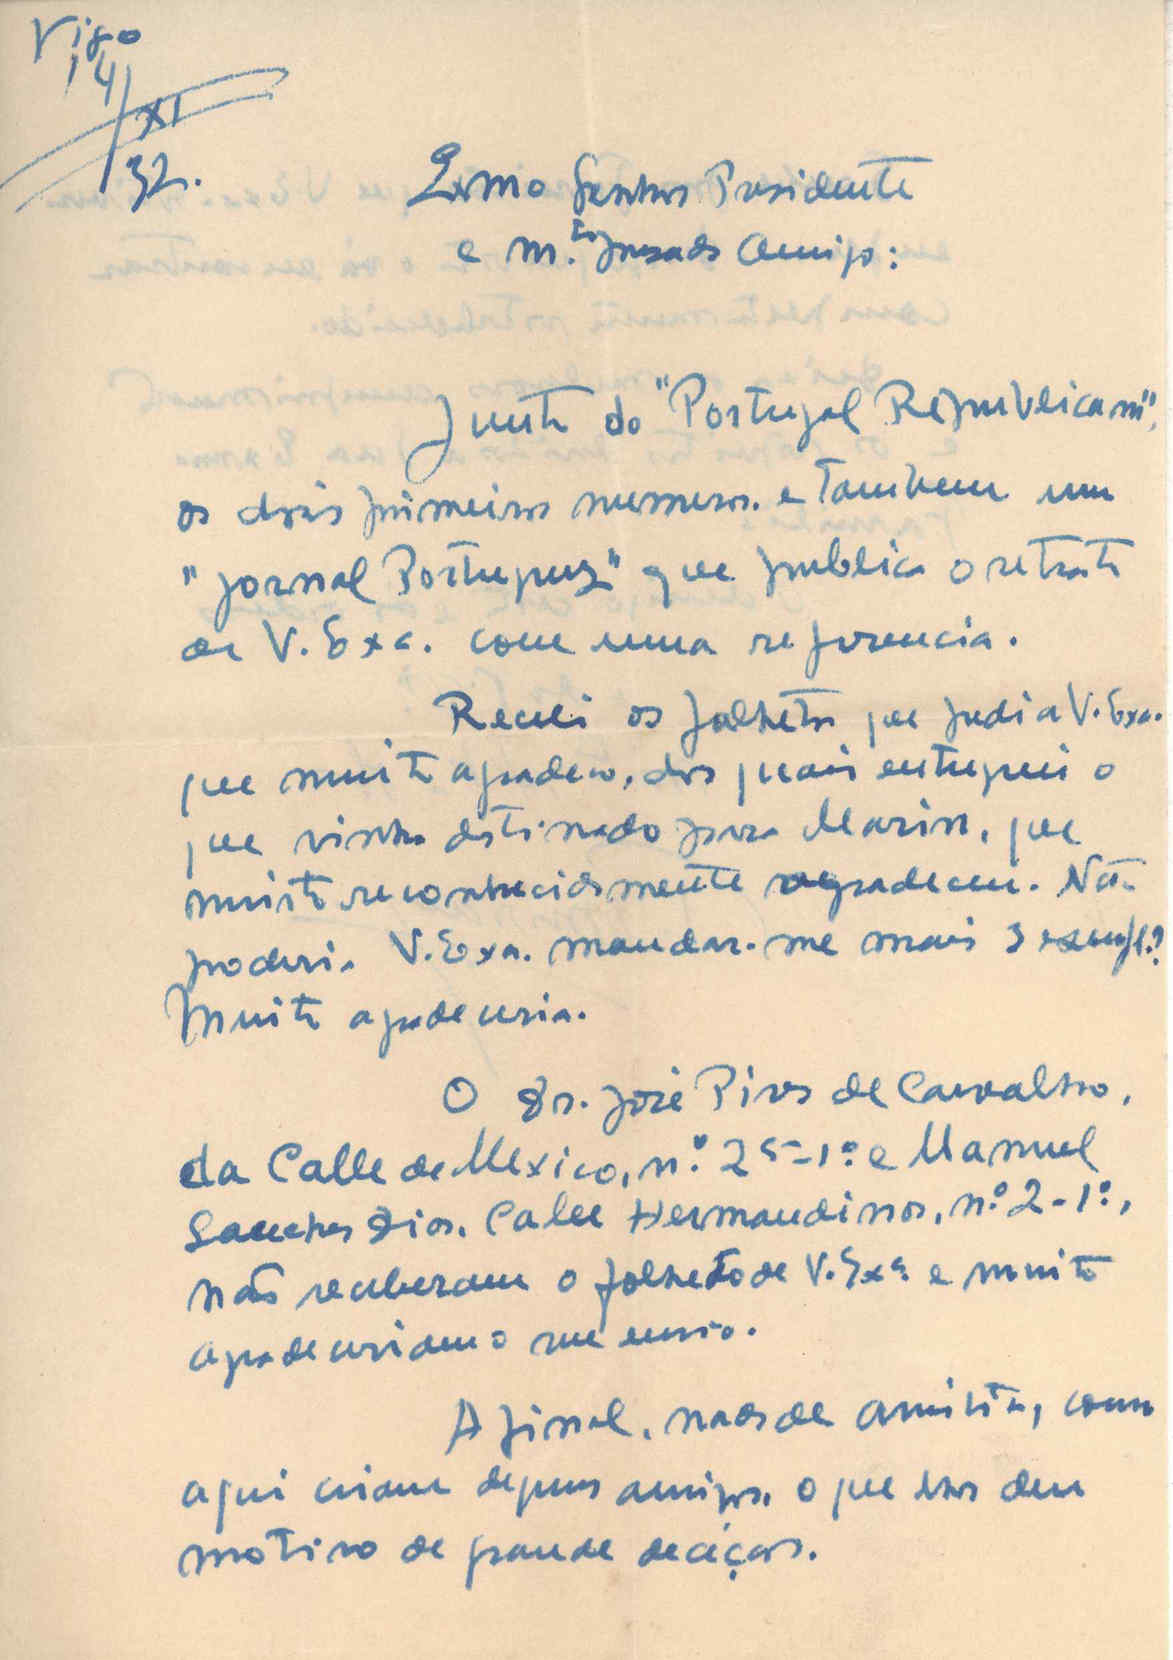 Vigo
14/
XI
32.
Exmo Senhor Presidente
e m.to presado Amigo:
Junto do "Portugal Republicano",
os dois primeiros numeros. e tambem um
"Jornal Portuguez" que publica o retrato
de V. Exa. com uma referencia.
Recebi os folhetos que pedi a V. Exa.
que muito agradeço, dos quais entreguei o
que vinha destinado para Marin, que
muito reconhecidamente agradeceu. Não
poderia V. Exa. mandar-me mais 3 exempl.?
Muito agradeceria.
O Sr. José Pires de Carvalho,
da Calle de Mexico, n.º 25-1º e Manuel
Sanches Dios, Calle Hernandinos, n.º 2-1º,
não receberam o folheto de V. Exa e muito
agradeceriam o seu envio.
Afinal, nada de amnistia, como
aqui criam alguns amigos, o que nos deu
motivo de grande